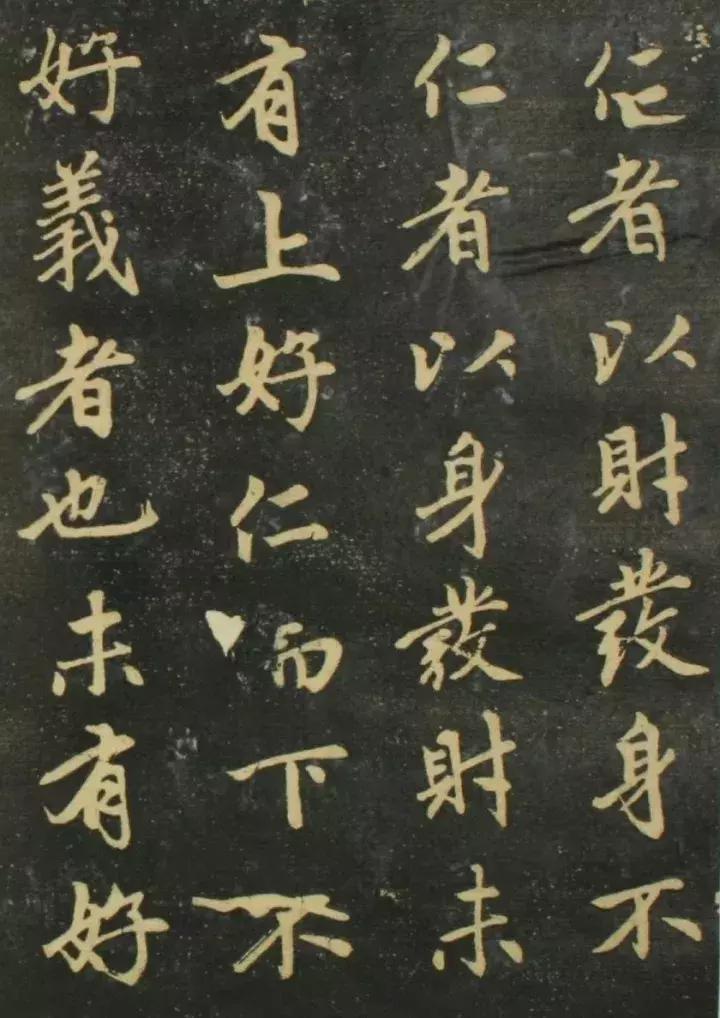 仁者以財發身不
仁者以身發財未
有上好仁而下不
好義者也未有好